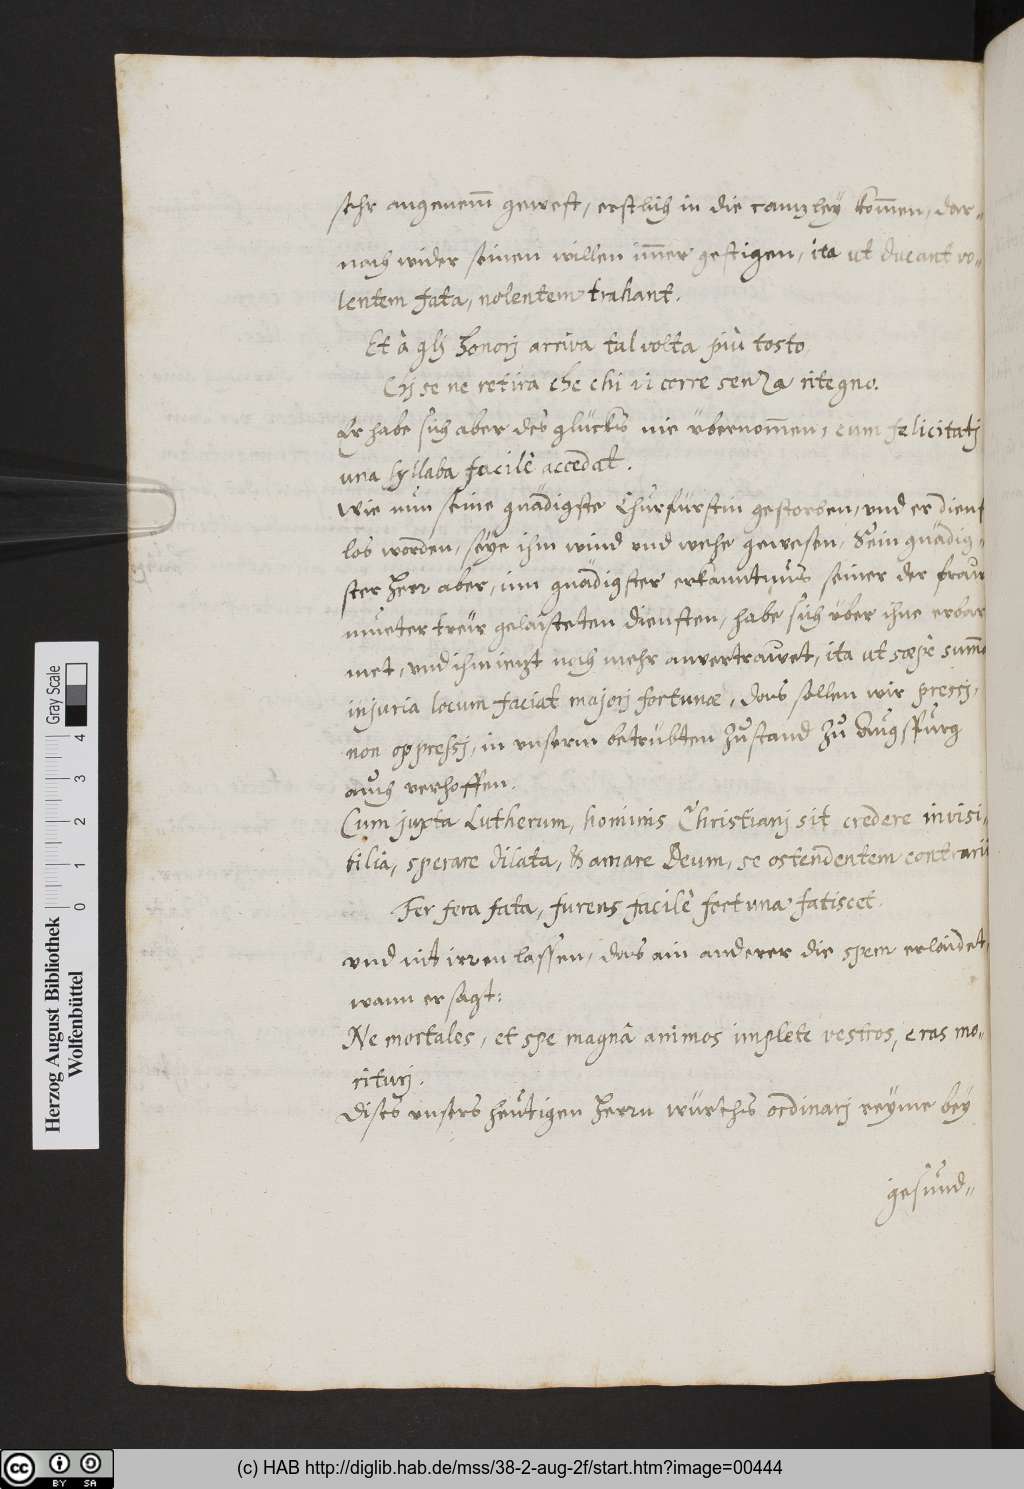 sehr angenem̅ gewest, erstlich in die cantzley kom̅en, dar-
nach wider seinen willen im̅er gestigen, ita ut ducant vo-
lentem fata, nolentem trahant.
Et à gli honorj arriva tal volta più tosto
Chj se ne retira che chi vi corre senza ritegno.
Er habe sich aber des glückhs nie übernom̅en, cum fælicitatj
una syllaba facilè accedat.
Wie nun seine gnädigste Churfürstin gestorben, vnd er dienst
los worden, seÿe ihm wind vnd wehe gewesen, Sein gnädig-
ster Herr aber, inn gnädigster erkanntnus seiner der fraw
mueter treür gelaisteten diensten, habe sich über ihne erbar
met, vnd ihm ietzt noch mehr anvertrawet, ita ut sæpè summa
injuria locum faciat majorj fortunæ, das sollen wir pressj,
non oppressj, in vnserm betrübten zustand zu Augspurg
auch verhoffen.
Cum juxta Lutherum, hominis Christianj sit credere invisi-
bilia, sperare dilata, & amare Deum, se ostendentem contrariū
Fer fera fata, furens facilè fortuna fatiscet.
vnd nit irren lassen, das ain anderer die spem erlaüdet,
wann er sagt:
Ne mortales, et spe magnâ animos implete vestros, cras mo-
riturj.
Dises vnsers heutigen Herrn würthis ordinarj reÿme beÿ
gesund-
Gray Scale
0 1 2 3 4
Herzog August Bibliothek
Wolfenbüttel
cc BY SA
(c) HAB http://diglib.hab.de/mss/38-2-aug-2f/start.htm?image=00444